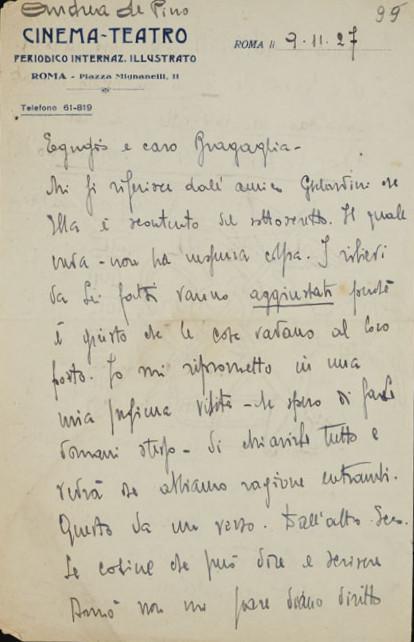 Andrea de Pino
95
CINEMA-TEATRO
PERIODICO INTERNAZ. ILLUSTRATO
ROMA - Piazza Mignanelli, 11
ROMA li 9.11.27
Telefono 61-819
Egregio e caro Bragaglia -
Mi si riferisce dall'amico che
Ella è scontento del sottoscritto. Il quale
- non ha nessuna colpa. I rilievi
da Lei fatti vanno aggiustati perchè
è giusto che le cose vadano al loro
posto. Io mi riprometto in una
mia visita - che spero di farle
domani stesso - di chiarirle tutto e
vedrà che abbiamo ragione entrambi.
Questo da un verso. Dall'altro
Le cosine che può dire e scrivere
non mi pare diano diritto